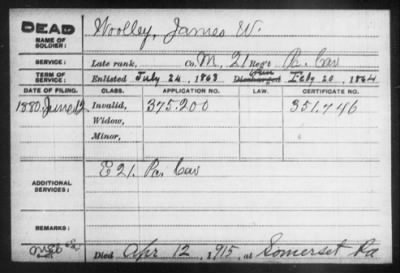 DEAD
NAME OF SOLDIER: Woolley, James W.
SERVICE: Late rank, Co. M, 21 Reg't Pa. Cav
TERM OF SERVICE: Enlisted July 24, 1863 Discharged Feby 20, 1864
DATE OF FILING. CLASS. APPLICATION NO. LAW. CERTIFICATE NO.
1880 June 12 Invalid, 375.200 351,746
Widow,
Minor,
ADDITIONAL SERVICES: E 21. Pa. Cav
REMARKS:
Died Apr 12, 1915, at Somerset Pa